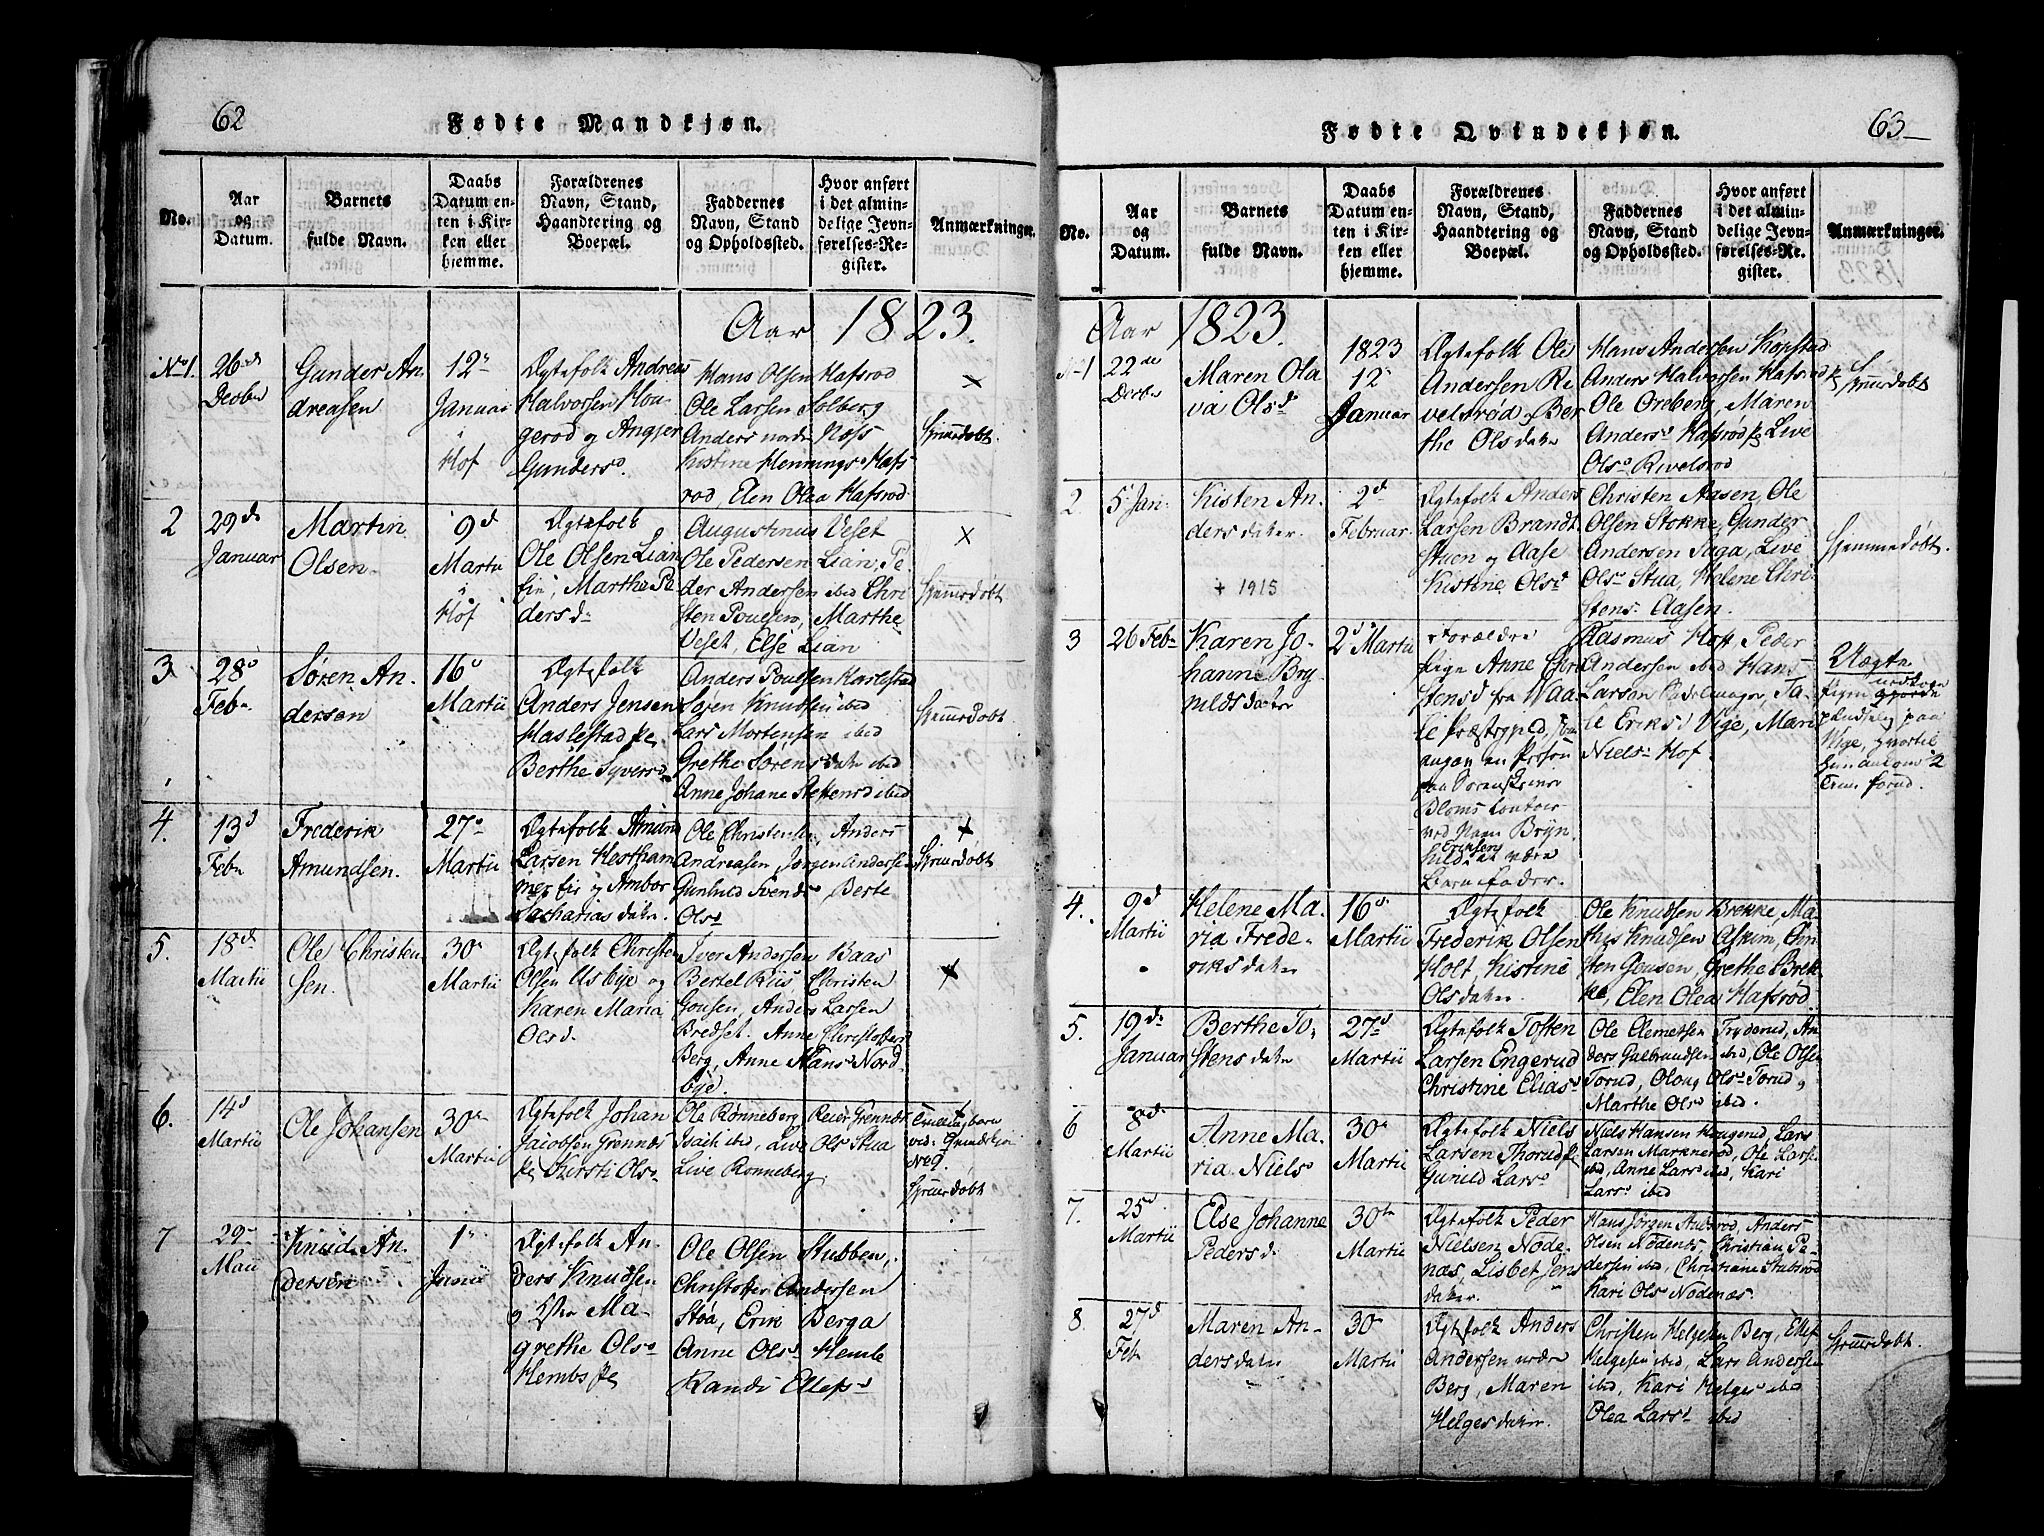 62
Fødte Mandkjøn.
No.
Aar
og
Datum.
Barnets
fulde Navn.
Daabs
Datum en-
ten i Kir-
ken eller
hjemme.
Forældrenes
Navn, Stand,
Haandtering og
Boepæl.
Faddernes
Navn, Stand
og Opholdssted.
Hvor anført
i det almin-
delige Jevn-
førelses-Re-
gister.
Anmærkninger.
Aar 1823.
No 1.
26de
Decbr
Gunder An
dreasen
12te
Januar
i
Hof
Ægtefolk Andreas
Halvorsen Hou
gerod og
Gundersd.
Hans Olsen Hafsrod
Ole Larsen Solberg
Anders nordre Hoff
Kistine Hennings Hafs
rod, Elen Olea Hafsrod
×
Hjemmedøbt.
2
29de
Januar
Martin
Olsen
9d
Martii
i
Hof
Ægtefolk
Ole Olsen Lian
Marthe Pe
dersd
Augustinus Veset
Ole Pedersen Lian, Pe
der Andersen ibid Chri
sten Poulsen, Marthe
Veset, Else Lian
×
Hjemmedøbt
3
28d
Febr
Søren An
dersen
16d
Martii
Ægtefolk
Anders Jensen
Haslestad
Berthe Syversd
Anders Poulsen Harlestad
Søren Knudsen ibid
Lars Mortensen ibid
Grethe Sørensdater ibid
Anne Johane Steffensd ibid
Hjemmedøbt
4.
13d
Febr
Frederik
Amundsen.
27de
Martii
Ægtefolk Amund
Larsen Hestham
mer og Ambor
Zachariasdater.
Ole Christensen, Anders
Andreasen Jørgen Andersen
Gunhild Svends Berte
Olsd
×
Hjemmedøbt
5.
18de
Martii
Ole Christen
sen.
30te
Martii
Ægtefolk Christen
Olsen Usbye og
Karen Maria
Olsd.
Iver Andersen Baas
Bertel Riis Christen
Gousen, Anders Larsen
Bredset. Anne Christophers
Berg, Anne Hans Nord
bye.
×
6.
14d
Martii
Ole Johansen
30te
Martii
Ægtefolk Johan
Jacobsen Grennes
Kirsti Ols
Ole Ronneberg Reier Grennes
Isach ibid, Live Ols Stua
Live Ronneberg
Tvillingbarn
No 9.
Hjemmedøbt
7
29
Maii
Knud An
dersen
1te
Junii
Ægtefolk An
ders Knudsen
Ma
grethe Ols
Hembs
Ole Olsen Stubben,
Christoffer Andersen
Støa, Erik Berga
Anne Ols Hemb
Randi Ellefs
63
Fødte Qvindekjøn.
No.
Aar
og
Datum.
Barnets
fulde Navn.
Daabs
Datum en-
ten i Kir-
ken eller
hjemme.
Forældrenes
Navn, Stand,
Haandtering og
Boepæl.
Faddernes
Navn, Stand
og Opholdssted.
Hvor anført
i det almin-
delige Jevn-
førelses-Re-
gister.
Anmærkninger.
Aar 1823.
1
22de
Decbr
Maren Ola
va Olsd
1823
12
Januar
Ægtefolk Ole
Andersen Re
velsrød og Ber
the Olsdater
Hans Andersen Kopstad
Anders Halvorsen Hafsrod
Ole Oreberg, Maren
Anders Hafsrod Live
Ols Rivelsrod
Hjemmedøbt
2.
5 Jan.
Kisten An
dersdater.
+ 1915
2d
Februar
Ægtefolk Anders
Larsen Brandt
Stuen og Aase
Kistine Olsd
Christen Aasen, Ole
Olsen Stokke, Gunder
Andersen Saga, Live
Ols Stua, Helene Chri
stens Aasen.
Hjemmedøbt.
3
26 Febr
Karen Jo
hanne Bry
nildsdater
2d Martii
Forældre
Pige Anne Chri
stensd fra Waa
le Præstegield,
angav en Person
paa
Bloms Contoir
ved Navn Bryn
hild Eriksen at være
Barnefader.
Rasmus Hoff Peder
Andersen ibid Hans
Larsen Ta
le Eriks Vige, Mari
Niels Hof
Uægte
Vige, hvortil
4.
9d
Martii
Helene Ma
ria Frede
riksdater
16de
Martii
Ægtefolk
Frederik Olsen
Holt, Kistine
Olsdater.
Ole Knudsen Brekke, Ma
this Knudsen Askim, Chri
sten Gousen, Grethe Brek
ke, Elen Olea Hafsrød
5.
19de
Januar
Berthe To
stensdater
27d
Martii
Ægtefolk Tosten
Larsen Engerud
Christine Elias
Ole Clemetsen Tryderud, An
ders Gulbrandsen ibid, Ole Olsen
Torud, Oloug Ols Torud og
Marthe Ols ibid.
6
8de
Martii
Anne Ma
ria Niels
30te
Martii
Ægtefolk Niels
Larsen Thorud
Gunild Lars
Niels Hansen Haugerud, Lars
Larsen Marknerød, Ole Larsen
ibid, Anne Lars ibid, Kari
Lars ibid
7.
25d
Martii
Else Johanne
Pedersd
30te
Martii
Ægtefolk Peder
Nielsen Node
næs, Lisbet Jens
dater.
Hans Jørgen Stubsrod, Anders
Olsen Nodenes, Christian Pe
dersen ibid, Christiane Stubsrod
Kari Ols Nodenæs.
8.
27d
Feb
Maren An
dersdater
30
Martii
Ægtefolk Anders
Andersen nedre
Berg, Maren
Helgesdater.
Christen Helgesen Berg, Ellef
Helgesen ibid, Lars Andersen
ibid, Kari Helges ibid
Olea Lars ibid
Hjemmedøbt.